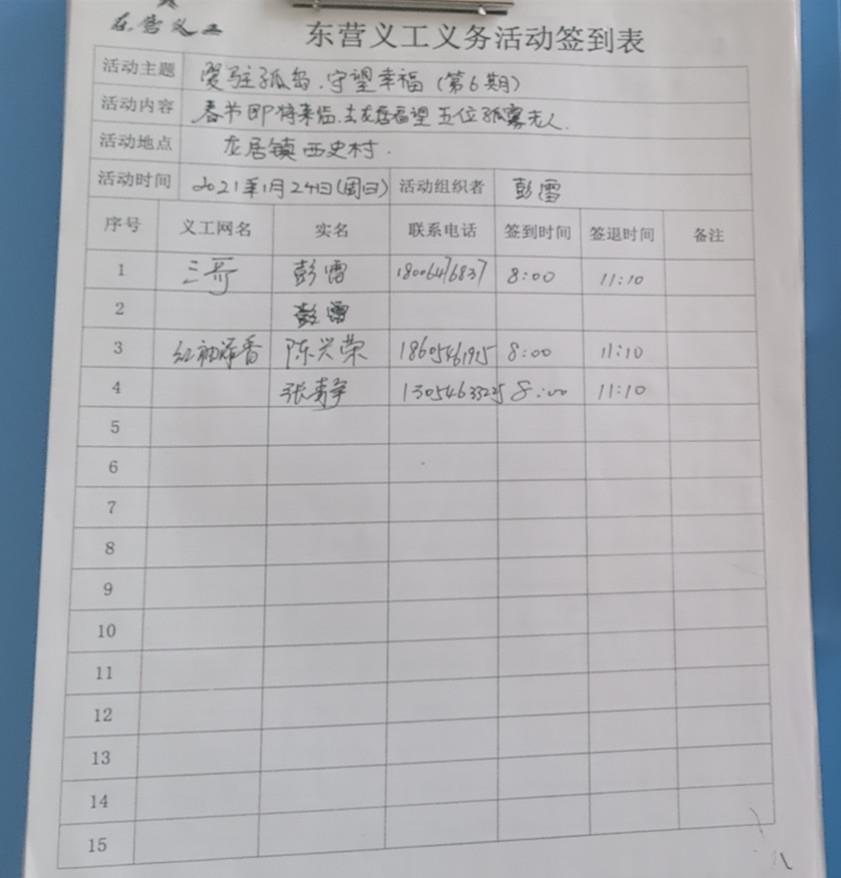 东营义工
东营义工义务活动签到表
活动主题 爱驻孤岛.守望幸福(第6期)
活动内容 春节即将来临.去龙居看望五位孤寡老人.
活动地点 龙居镇西史村.
活动时间 2021年1月24日(周日) 活动组织者 彭雷
序号 义工网名 实名 联系电话 签到时间 签退时间 备注
1 三哥 彭雷 18006476837 8:00 11:10
2 彭雷
3 红袖添香 陈兴荣 18605461915 8:00 11:10
4 张静 8:00 11:10
5
6
7
8
9
10
11
12
13
14
15